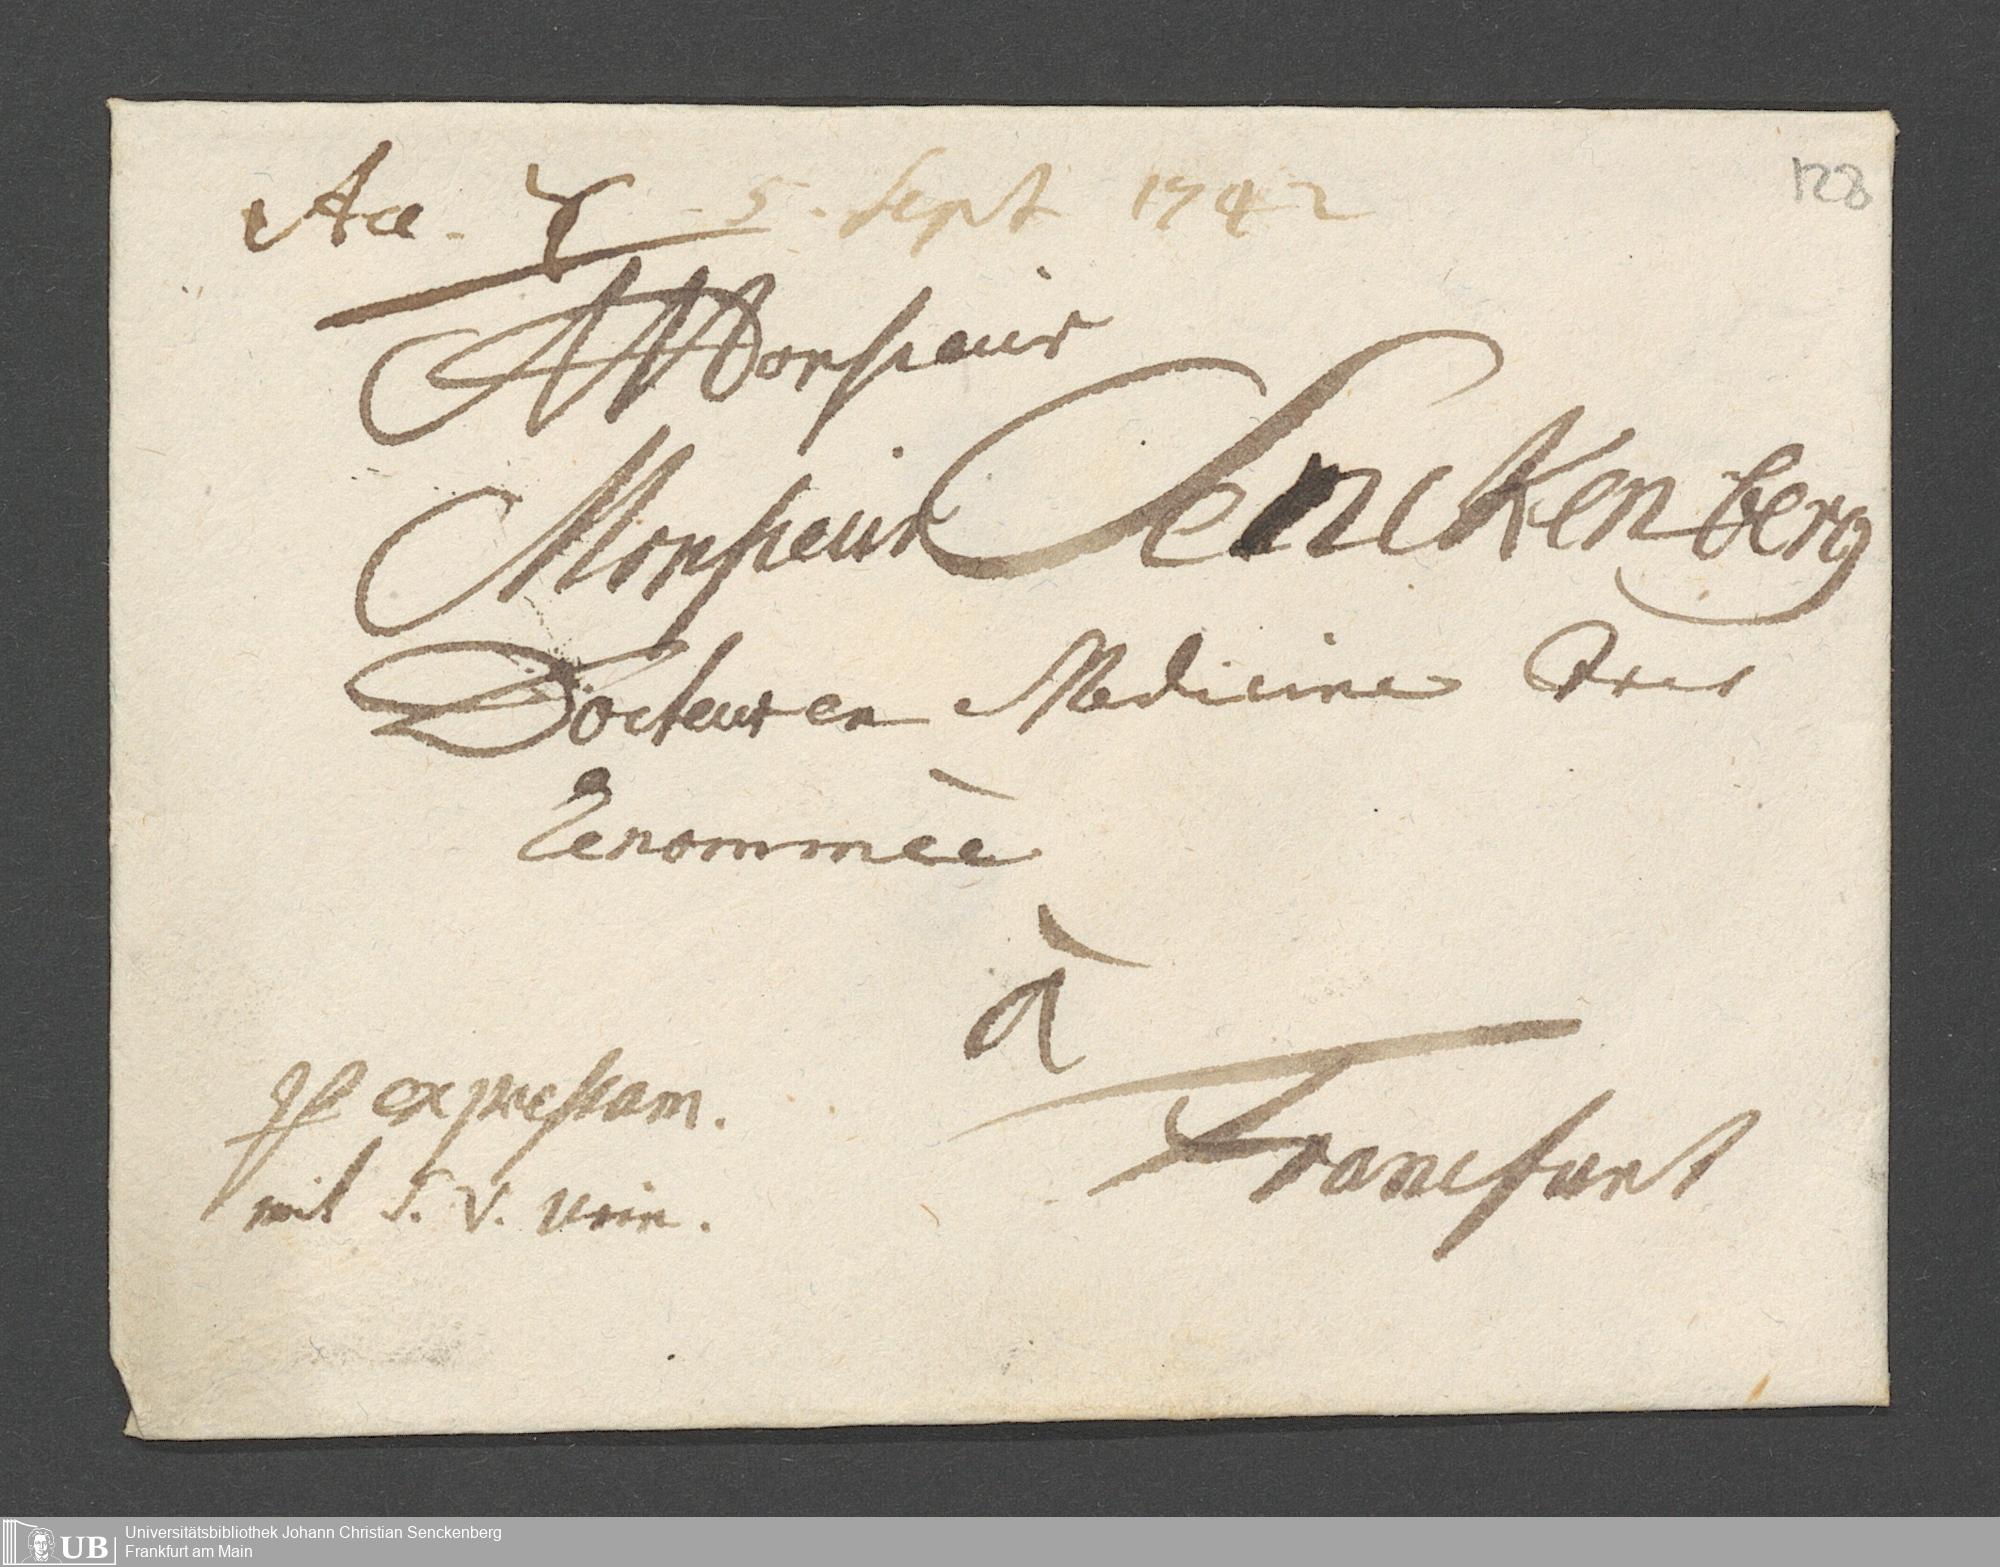 Acc. ☿ 5. Sept 1742
128
Monsieur
Monsieur Senckenberg
Docteur en Medicine Tres
Renommèe
à
Francfurt
expressam.
mit S. V. Urin.
Universitätsbibliothek Johann Christian Senckenberg
Frankfurt am Main
UB